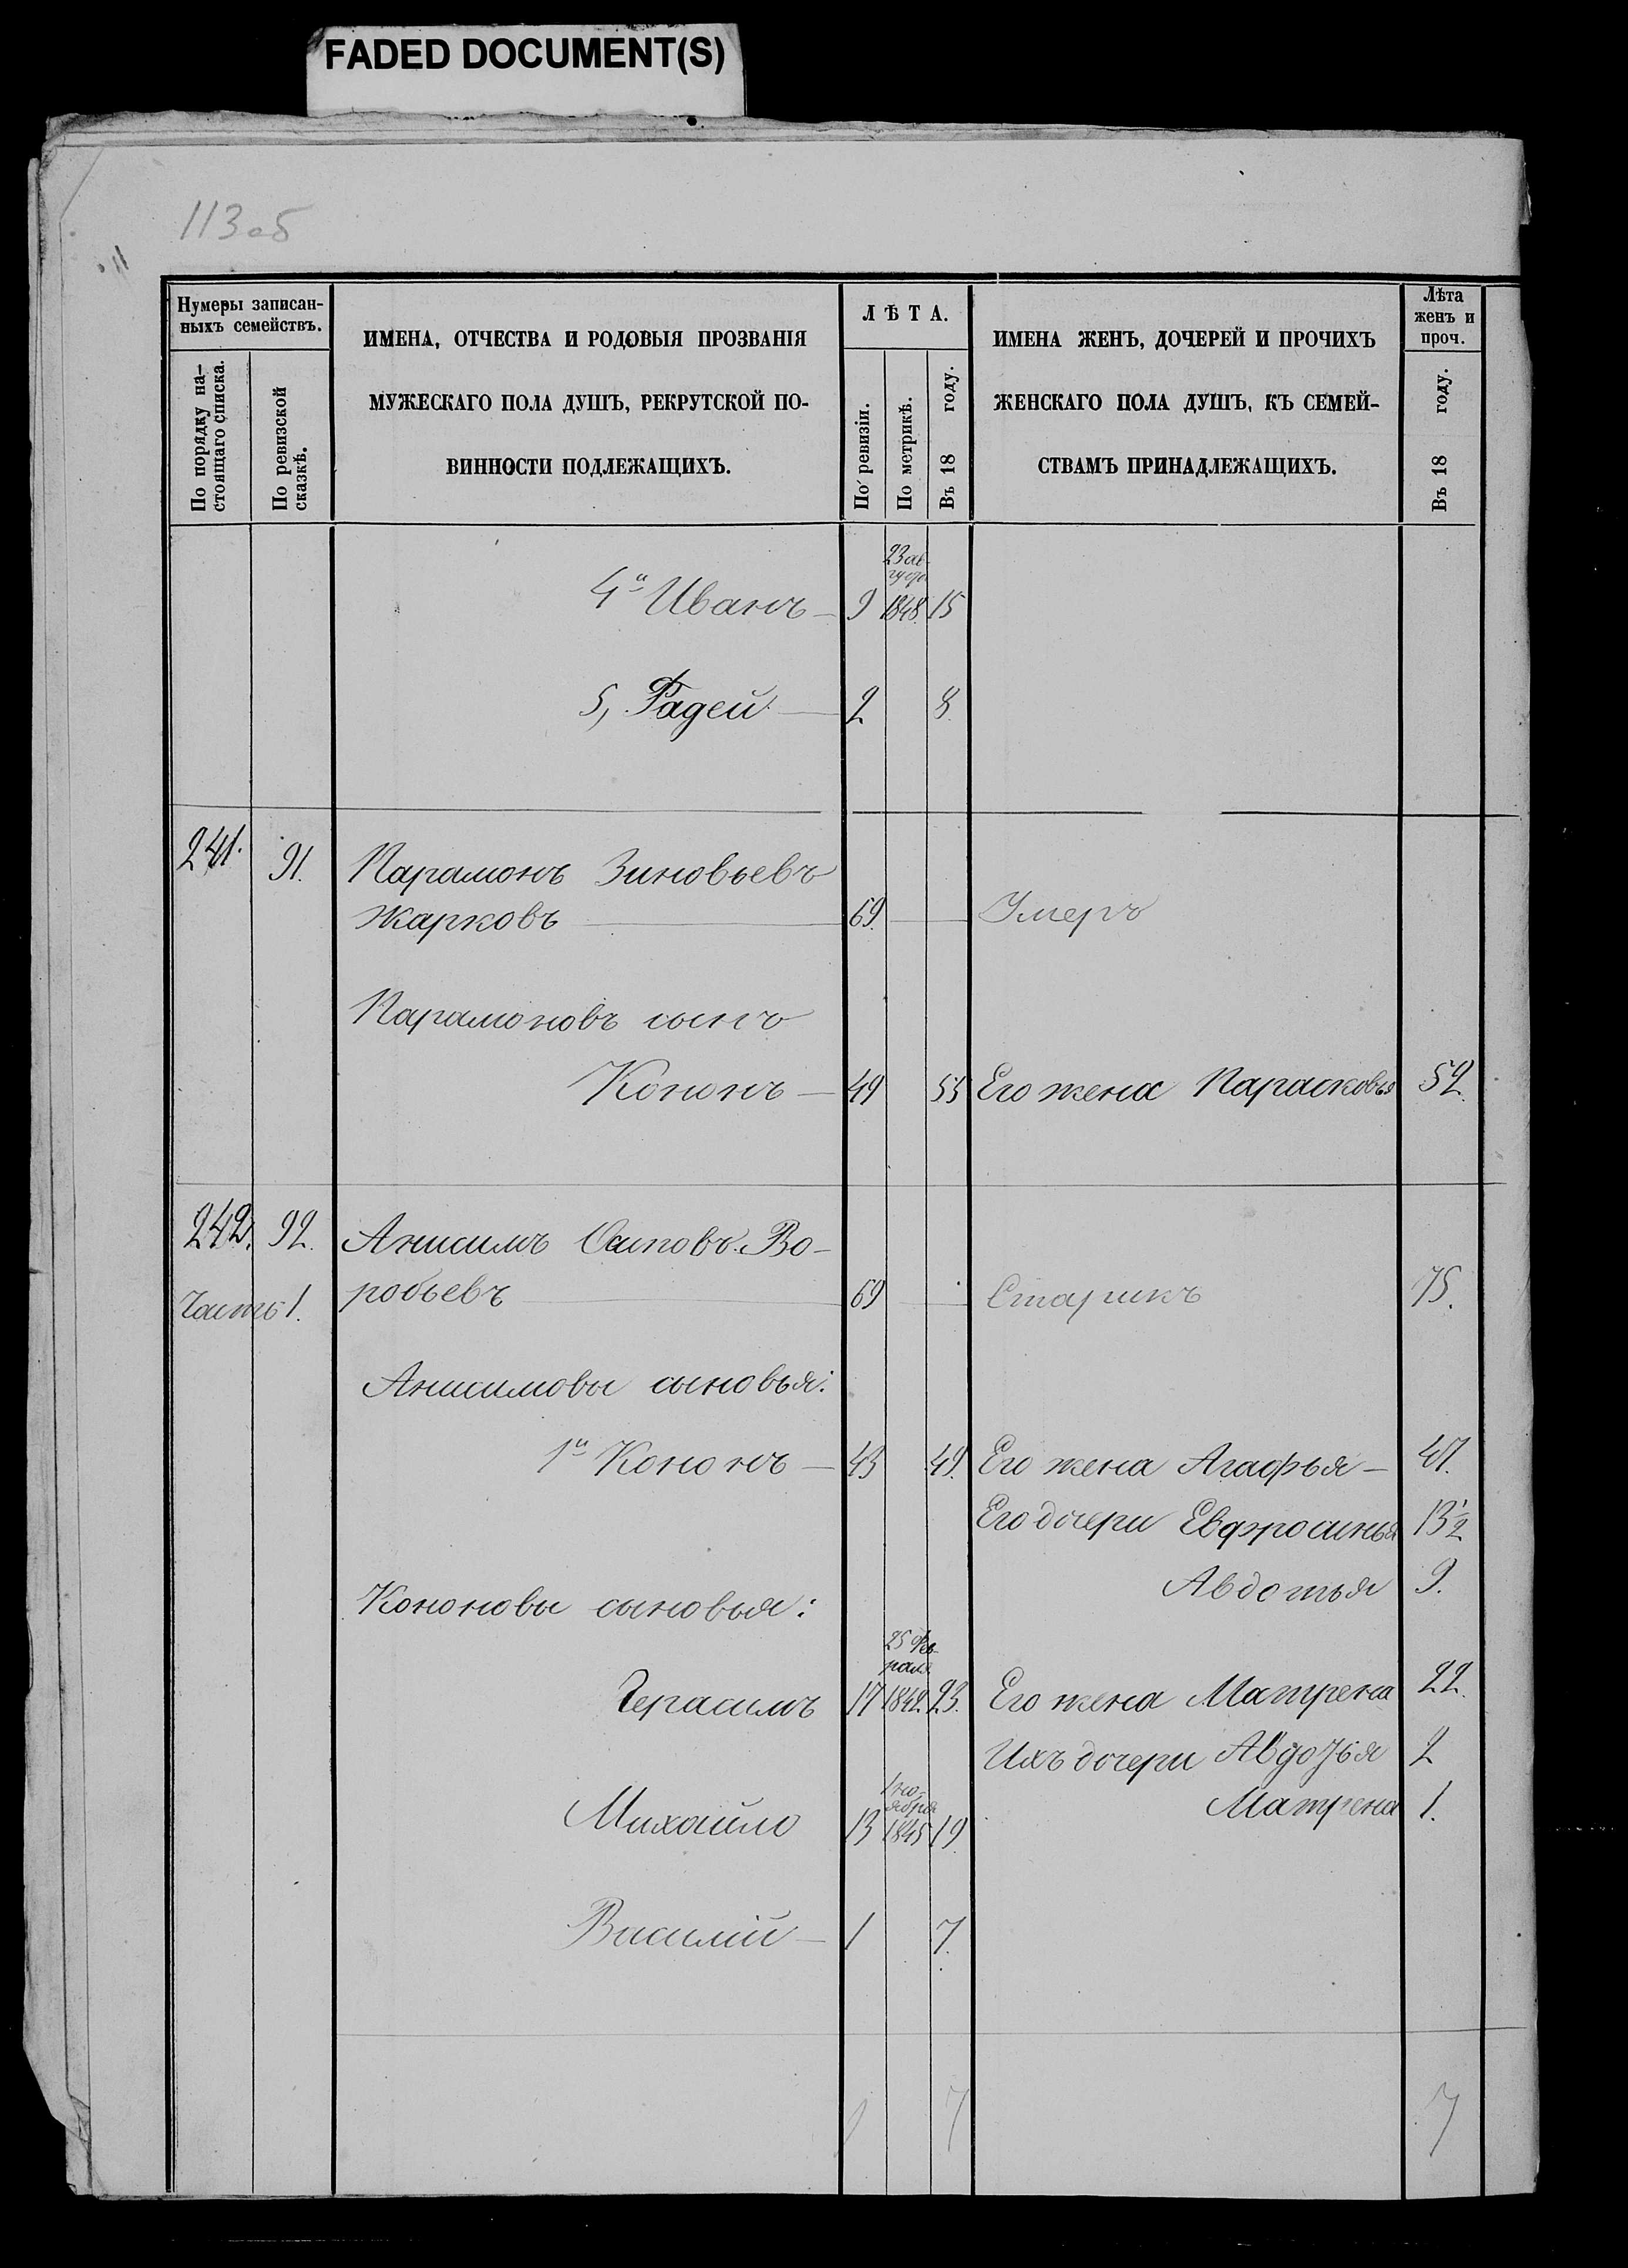 FADED DOCUMENT(S)
113об
Нумеры записан-
ныхъ семействъ.
По порядку на-
стоящаго списка.
По ревизской
сказкѣ.
ИМЕНА, ОТЧЕСТВА И РОДОВЫЯ ПРОЗВАНІЯ
МУЖЕСКАГО ПОЛА ДУШЪ, РЕКРУТСКОЙ ПО-
ВИННОСТИ ПОДЛЕЖАЩИХЪ.
ЛѢТА.
По ревизіи.
По метрикѣ.
Въ 18 году.
ИМЕНА ЖЕНЪ, ДОЧЕРЕЙ И ПРОЧИХЪ
ЖЕНСКАГО ПОЛА ДУШЪ, КЪ СЕМЕЙ-
СТВАМЪ ПРИНАДЛЕЖАЩИХЪ.
Лѣта
женъ и
проч.
Въ 18 году.
23 ав-
густа
4й Иванъ — 9 1848 15
5, Фадей — 2 8.
241. 91. Парамонъ Зиновьевъ
Жарковъ 69. Умеръ
Парамоновъ сынъ
Кононъ — 49 55 Его жена Парасковья 52.
242. 92. Анисимъ Осиповъ Во-
Часть 1. робьевъ 69 Старикъ 75.
Анисимовы сыновья:
1й Кононъ — 43 49. Его жена Агафья — 47.
Его дочери Евфросинья 13 1/2
Авдотья 9.
Кононовы сыновья:
25 Фев-
раля
Герасимъ 17 1842 23. Его жена Матрена 22.
Ихъ дочери Авдотья 2
1 но-
ября
Матрена 1.
Михайло 13 1845 19
Василій — 1 7.
7 7